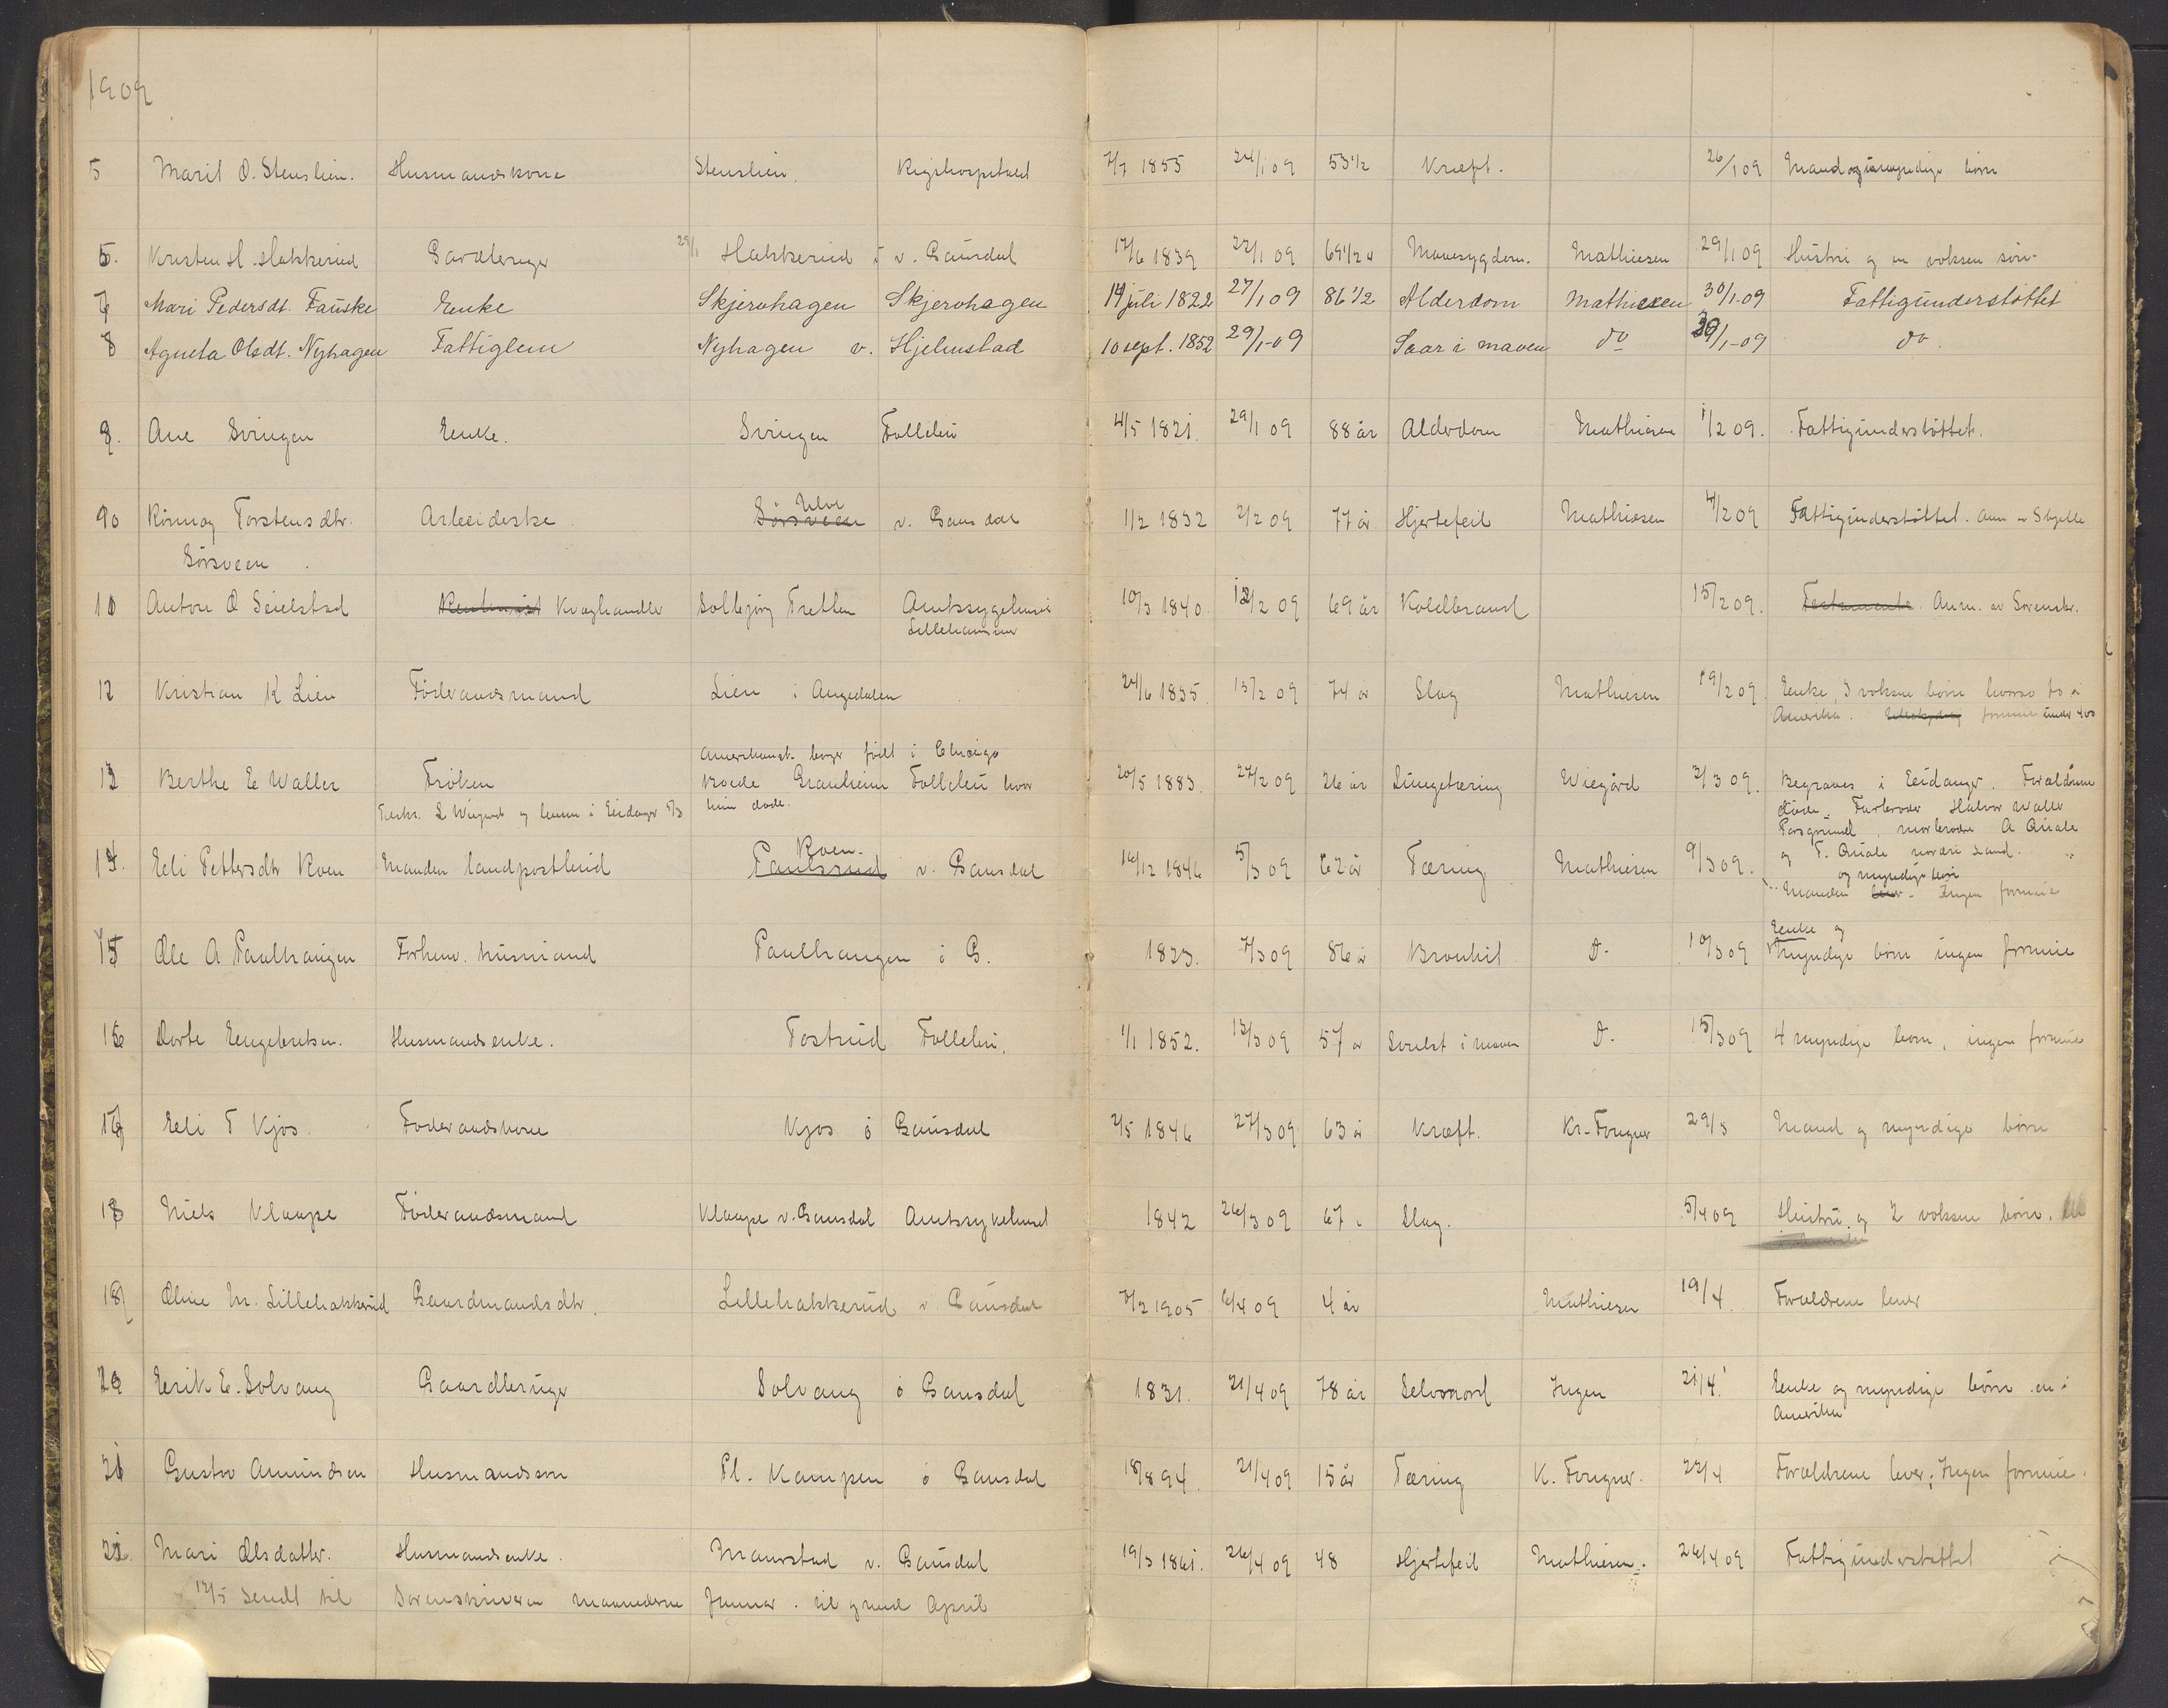 1909
5 Marit O. Stenslien. Husmandskone Stenslien. Rigshospitalet 7/7 1855 24/1 09 53 1/2 Kræft. 26/1 09 Mand og umyndige börn
6. Kristen H. Hakkerud Gardbruger 29/1 Hakkerud i v. Gausdal 17/6 1839 22/1 09 69 1/2 år Mavesygdom. Mathiesen 29/1 09 Hustru og en voksen sön
7 Mari Pedersdt. Fauske Enke Skjerohagen Skjerohagen 14 juli 1822 27/1 09 86 1/2 Alderdom Mathiesen 30/1-09 Fattigunderstöttet
8 Agneta Olsdt. Nyhagen Fattiglem Nyhagen v. Hjelmstad 10 sept. 1852 29/1-09 Saar i maven do 30/1-09 do.
9. Ane Svingen Enke. Svingen Follebu 4/5 1821 29/1 09 88 år Alderdom Mathiesen 1/2 09. Fattigunderstöttet.
10 Rönnog Torstensdtr. Arbeiderske Sörsveen v. Gausdal 1/2 1832 2/2 09 77 år Hjertefeil Mathiesen 4/2 09 Fattigunderstöttet.
Sörsveen
11 Anton O Seielstad Kraghandler Solbjörg Tretten Amtssygehuset 10/3 1840 12/2 09 69 år Koldbrand 15/2 09. Testamente. Anm. av Sorenskr.
Lillehammer
12 Kristian K Lien Föderaadsmand Lien i Augedalen 24/6 1835 15/2 09 74 år Slag Mathiesen 19/2 09 Enke, 3 voksne börn hvorav to i
Amerika. formue under 400
Amerikansk borger födt i Chicago
13 Berthe E Waller Fröken Granheim Follebu hvor 20/5 1883 27/2 09 26 år Lungetæring Wiegård 2/3 09. Begraves i Eidanger. Forældrene
hun döde. döde. Farbroder Halvor Waller
Porsgrund, morbroder A Qvale
Roen
14. Eli Pettersdtr Roen Manden landpostbud Paulsrud v. Gausdal 16/12 1846 5/3 09 62 år Tæring Mathiesen 9/3 09. og T. Qvale
og myndige börn
Manden lever. Ingen formue
Enke og
15 Ole A Paulhaugen Forhenv. husmand Paulhaugen ö G. 1823. 7/3 09 86 år Bronkit D. 10/3 09 Myndige börn ingen formue
16 Dorte Engebretsen. Husmandsenke. Fostrud Follebu. 1/1 1852. 13/3 09 57 år Svulst i maven D. 15/3 09 4 myndige börn, ingen formue
17 Eli T Kjos. Foderaadskone Kjos ö Gausdal 2/5 1846 27/3 09 63 år Kræft. Kr. Fougner 29/3 Mand og myndige börn
18 Niels Klaape Föderaadsmand Klaape v. Gausdal Amtssykehuset 1842 26/3 09 67 Slag. 5/4 09 Hustru og 2 voksne börn.
19 Oline M. Lillehakkerud Gaardmandsdtr. Lillehakkerud v. Gausdal 7/2 1905 6/4 09 4 år Mathiesen 19/4 Forældrene lever
20 Erik E. Solvang Gaardbruger Solvang ö Gausdal 1831. 21/4 09 78 år Selvmord Ingen 21/4. Enke og myndige börn en i
Amerika
21 Gustav Amundsen Husmandssön Pl. Kampen ö Gausdal 18/8 94. 21/4 09 15 år Tæring K. Fougner. 22/4 Forældrene lever; Ingen formue.
22. Mari Olsdatter. Husmandsenke. Maurstad v. Gausdal 19/3 1861. 26/4 09 48 Hjertefeil Mathiesen. 26/4 09 Fattigunderstöttet
12/5 Sendt til Sorenskriveren maanederne Januar til og med April